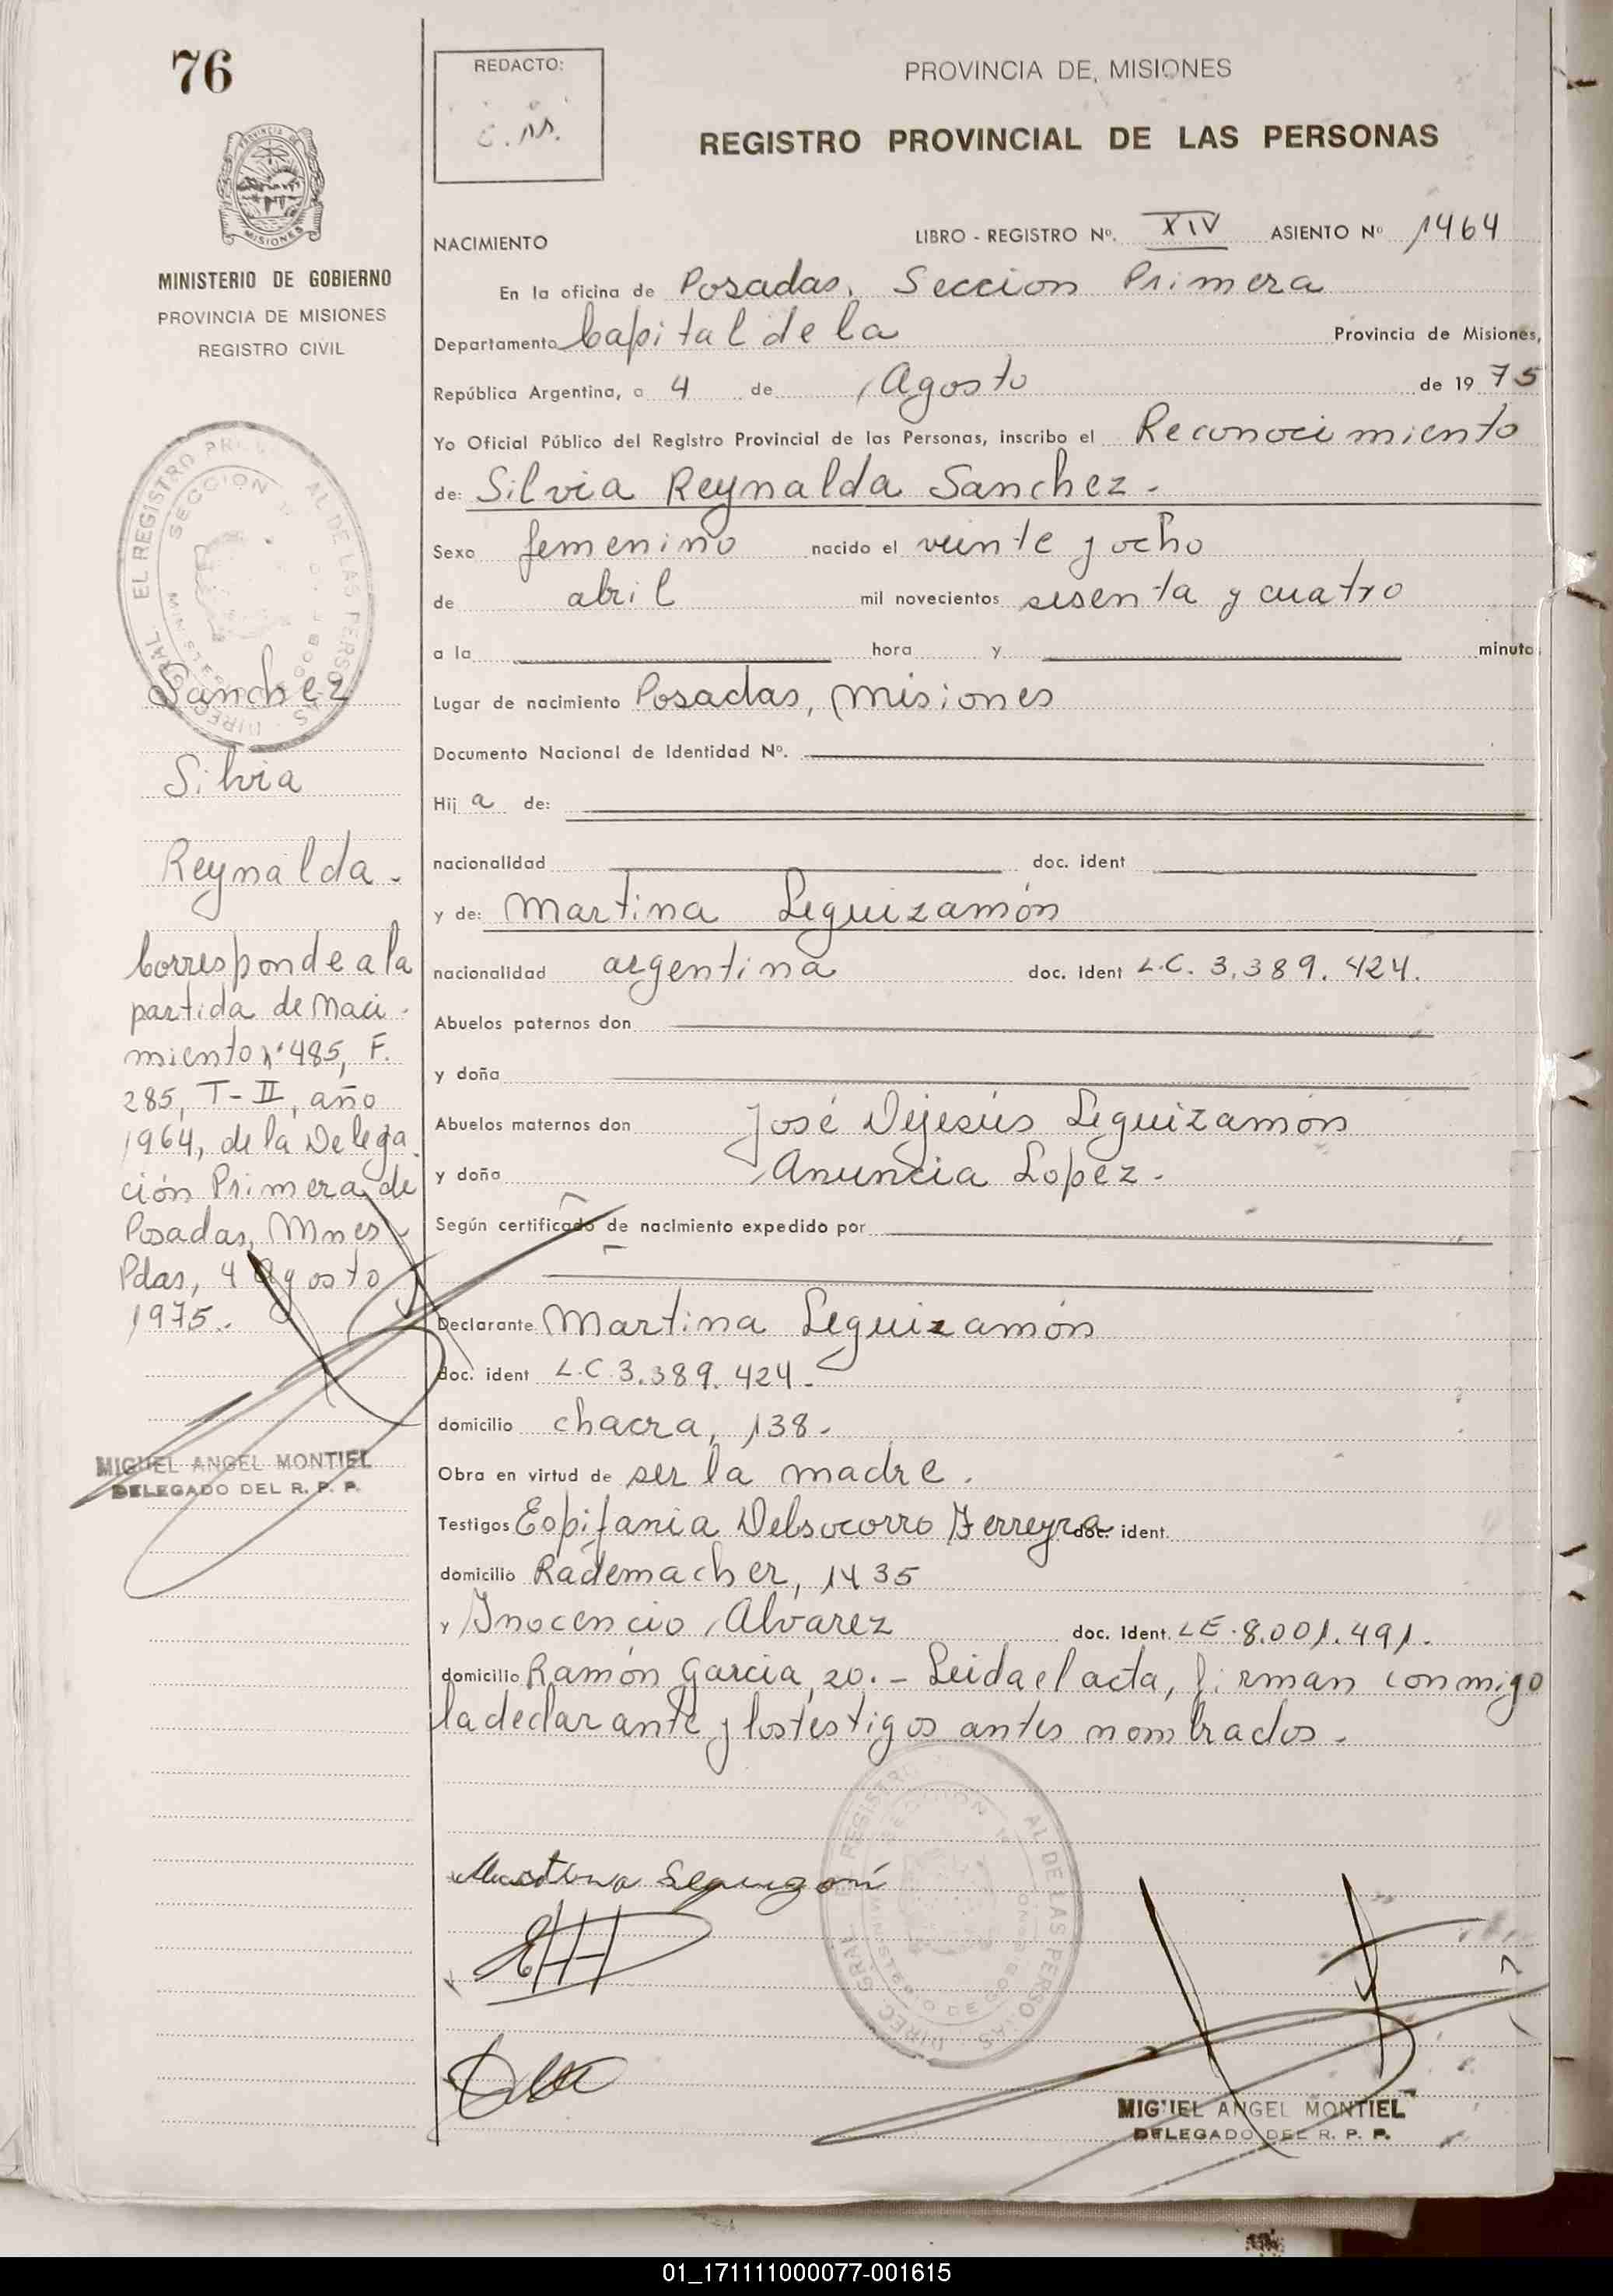 76
MINISTERIO DE GOBIERNO
PROVINCIA DE MISIONES
REGISTRO CIVIL
Sanchez
Silvia
Reynalda.
Corresponde a la
partida de Naci-
miento nº 485, F.
285, T-II, año
1964, de la Delega
ción Primera de
Posadas, Mnes
Pdas, 4 Agosto
1975.
MIGUEL ANGEL MONTIEL
DELEGADO DEL R. P. P.
REDACTO:
PROVINCIA DE MISIONES
REGISTRO PROVINCIAL DE LAS PERSONAS
NACIMIENTO LIBRO - REGISTRO Nº. XIV ASIENTO Nº 1464
En la oficina de Posadas, Seccion Primera
Departamento Capital de la Provincia de Misiones,
República Argentina, a 4 de Agosto de 1975
Yo Oficial Público del Registro Provincial de las Personas, inscribo el Reconocimiento
de: Silvia Reynalda Sanchez.
Sexo femenino nacido el veinte y ocho
de abril mil novecientos sesenta y cuatro
a la hora y minuto
Lugar de nacimiento Posadas, Misiones
Documento Nacional de Identidad Nº.
Hija de:
nacionalidad doc. ident
y de: Martina Leguizamón
nacionalidad argentina doc. ident L.C. 3.389.424.
Abuelos paternos don
y doña
Abuelos maternos don José Dejesús Leguizamón
y doña Anuncia Lopez.
Según certificado de nacimiento expedido por
Declarante Martina Leguizamón
doc. ident L.C 3.389.424.
domicilio chacra, 138.
Obra en virtud de ser la madre.
Testigos Eopifania Delsocorro Ferreyra doc. ident.
domicilio Rademacher, 1435
y Inocencio Alvarez doc. ident. LE. 8.001.491.
domicilio Ramón Garcia, 20.- Leida el acta, firman conmigo
la declarante y los testigos antes nombrados.
MIGUEL ANGEL MONTIEL
DELEGADO DEL R. P. P.
01_171111000077-001615